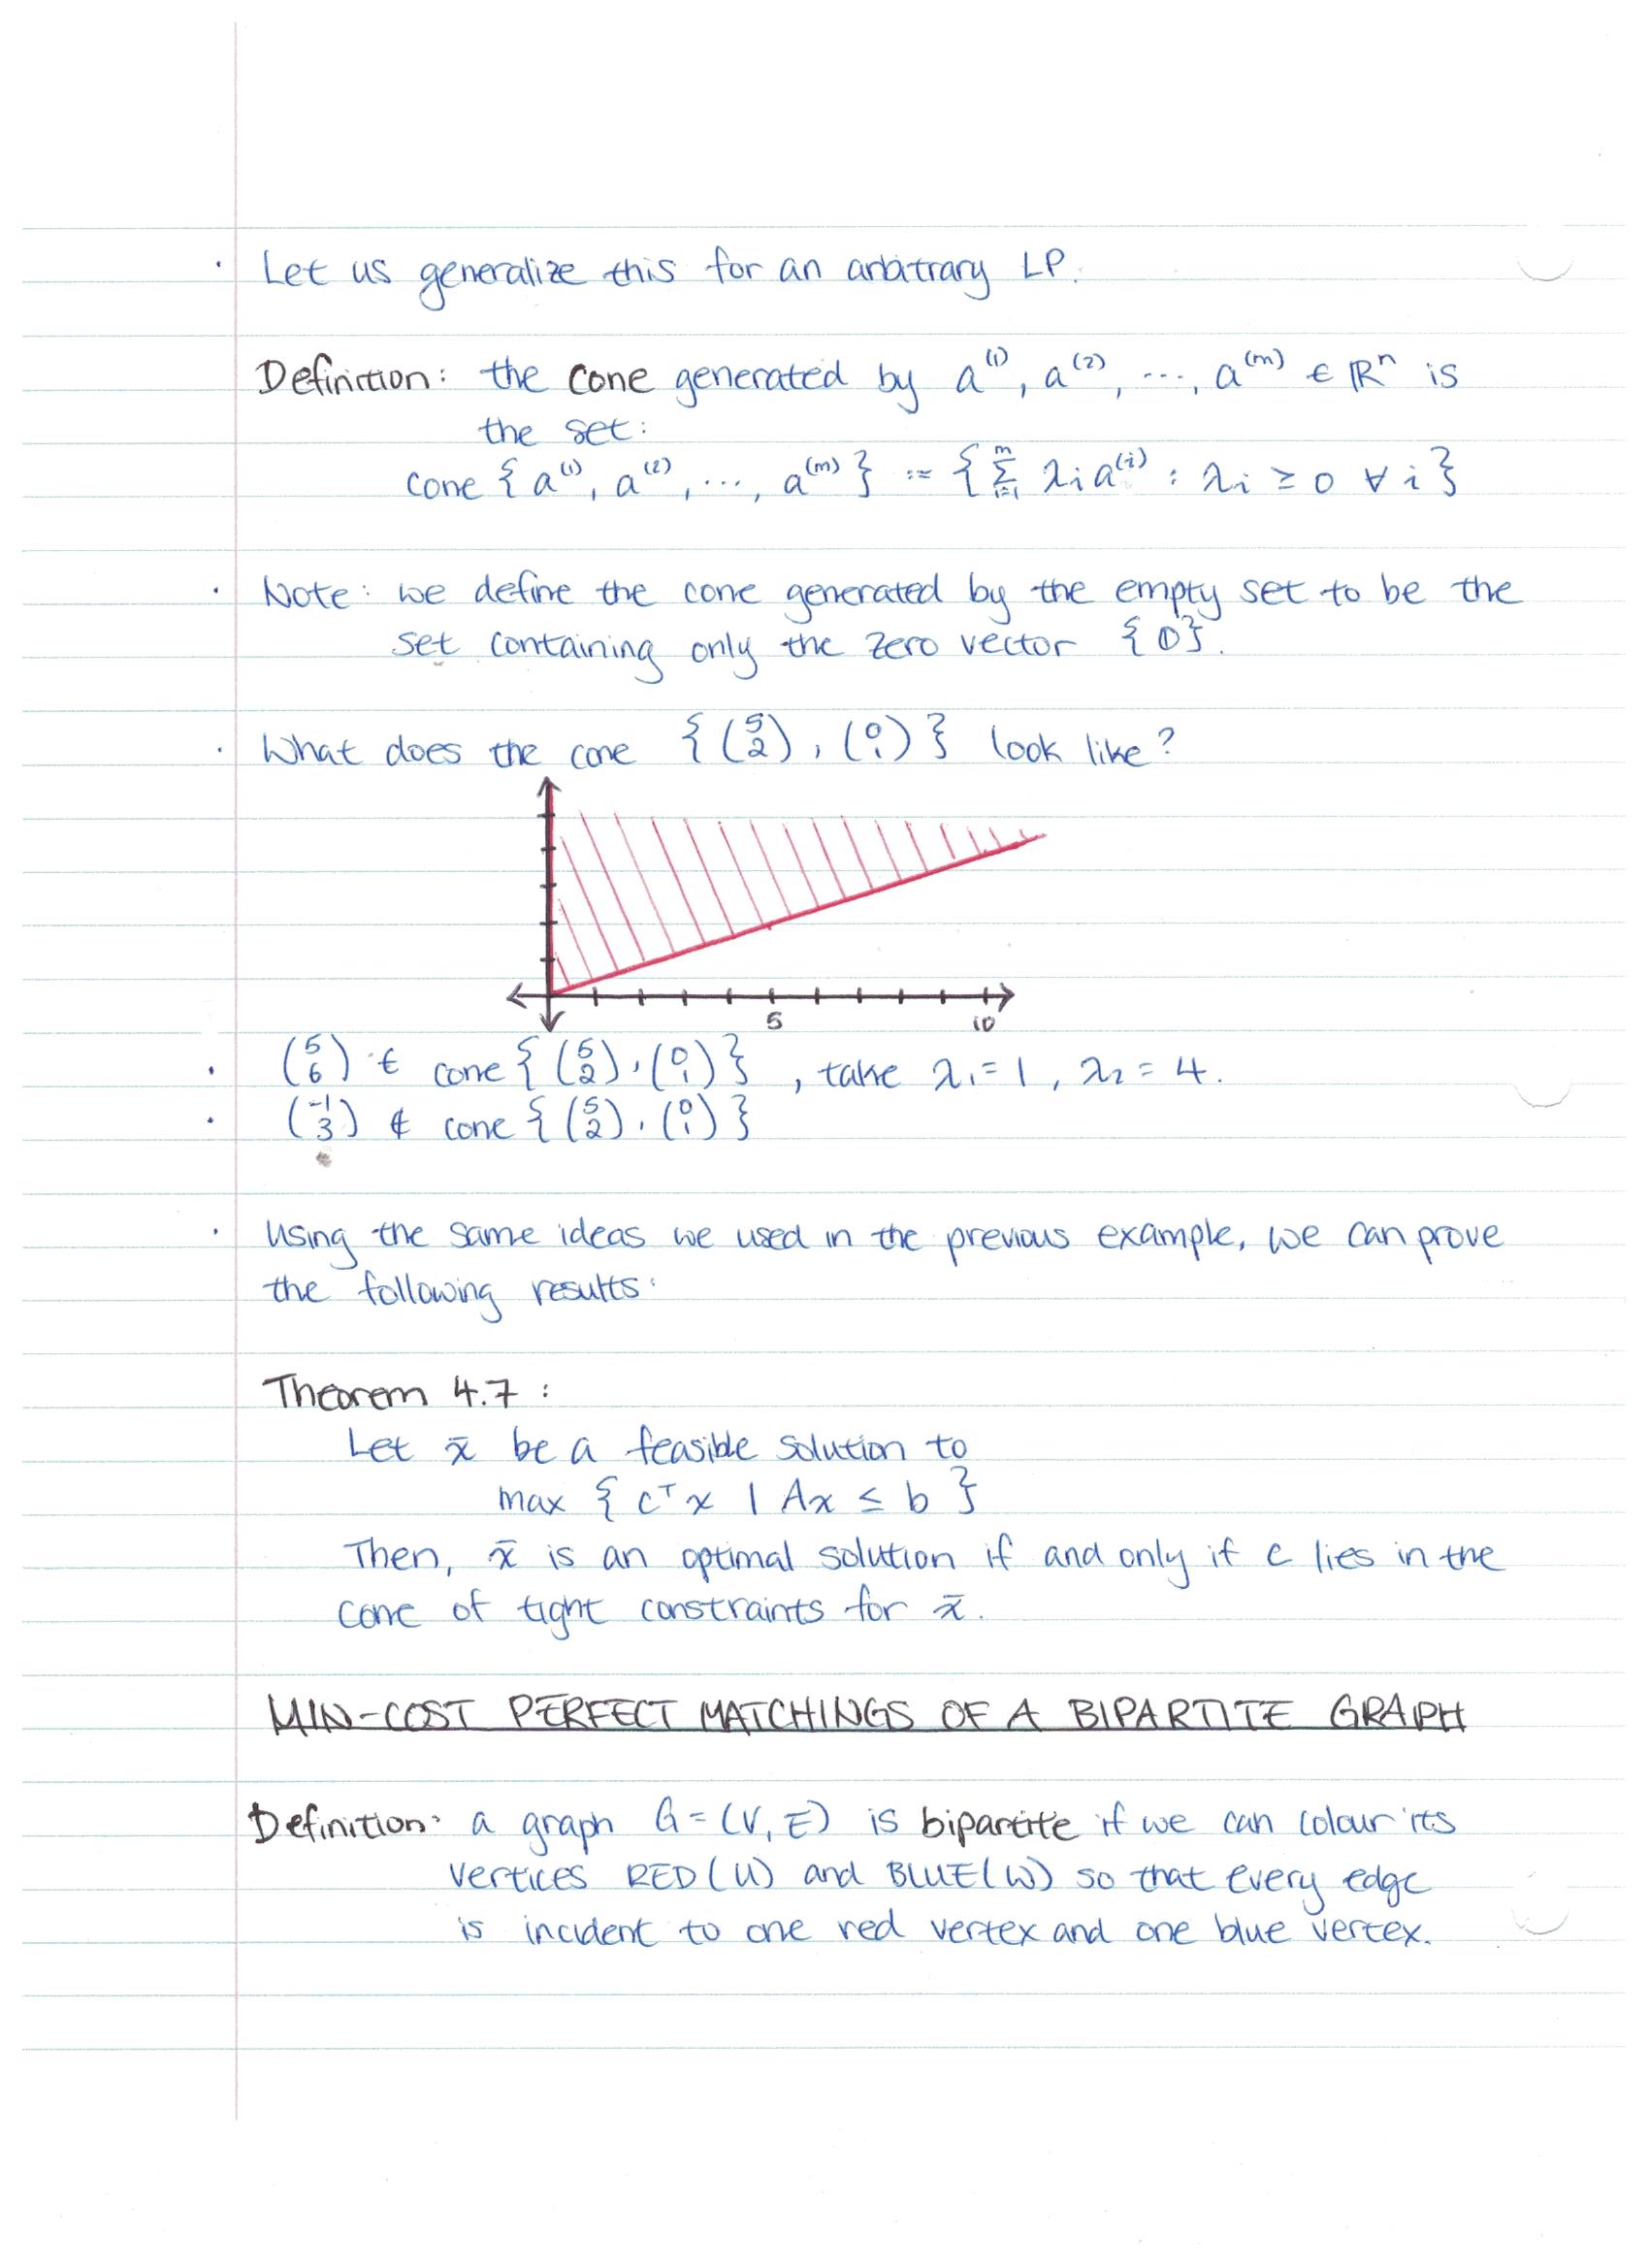 · Let us generalize this for an arbitrary LP.
Definition: the cone generated by a⁽¹⁾, a⁽²⁾, ..., a⁽ᵐ⁾ ∈ ℝⁿ is
the set:
cone { a⁽¹⁾, a⁽²⁾, ..., a⁽ᵐ⁾ } := { Σᵢ₌₁ᵐ λᵢ a⁽ⁱ⁾ : λᵢ ≥ 0 ∀ i }
· Note: we define the cone generated by the empty set to be the
set containing only the zero vector {𝟘}.
· What does the cone { (5 2), (0 1) } look like?
5 10
· (5 6) ∈ cone { (5 2), (0 1) }, take λ₁ = 1, λ₂ = 4.
· (-1 3) ∉ cone { (5 2), (0 1) }
· Using the same ideas we used in the previous example, we can prove
the following results:
Theorem 4.7 :
Let x̄ be a feasible solution to
max { cᵀx | Ax ≤ b }
Then, x̄ is an optimal solution if and only if c lies in the
cone of tight constraints for x̄.
MIN-COST PERFECT MATCHINGS OF A BIPARTITE GRAPH
Definition: a graph G = (V, E) is bipartite if we can colour its
vertices RED (U) and BLUE (W) so that every edge
is incident to one red vertex and one blue vertex.